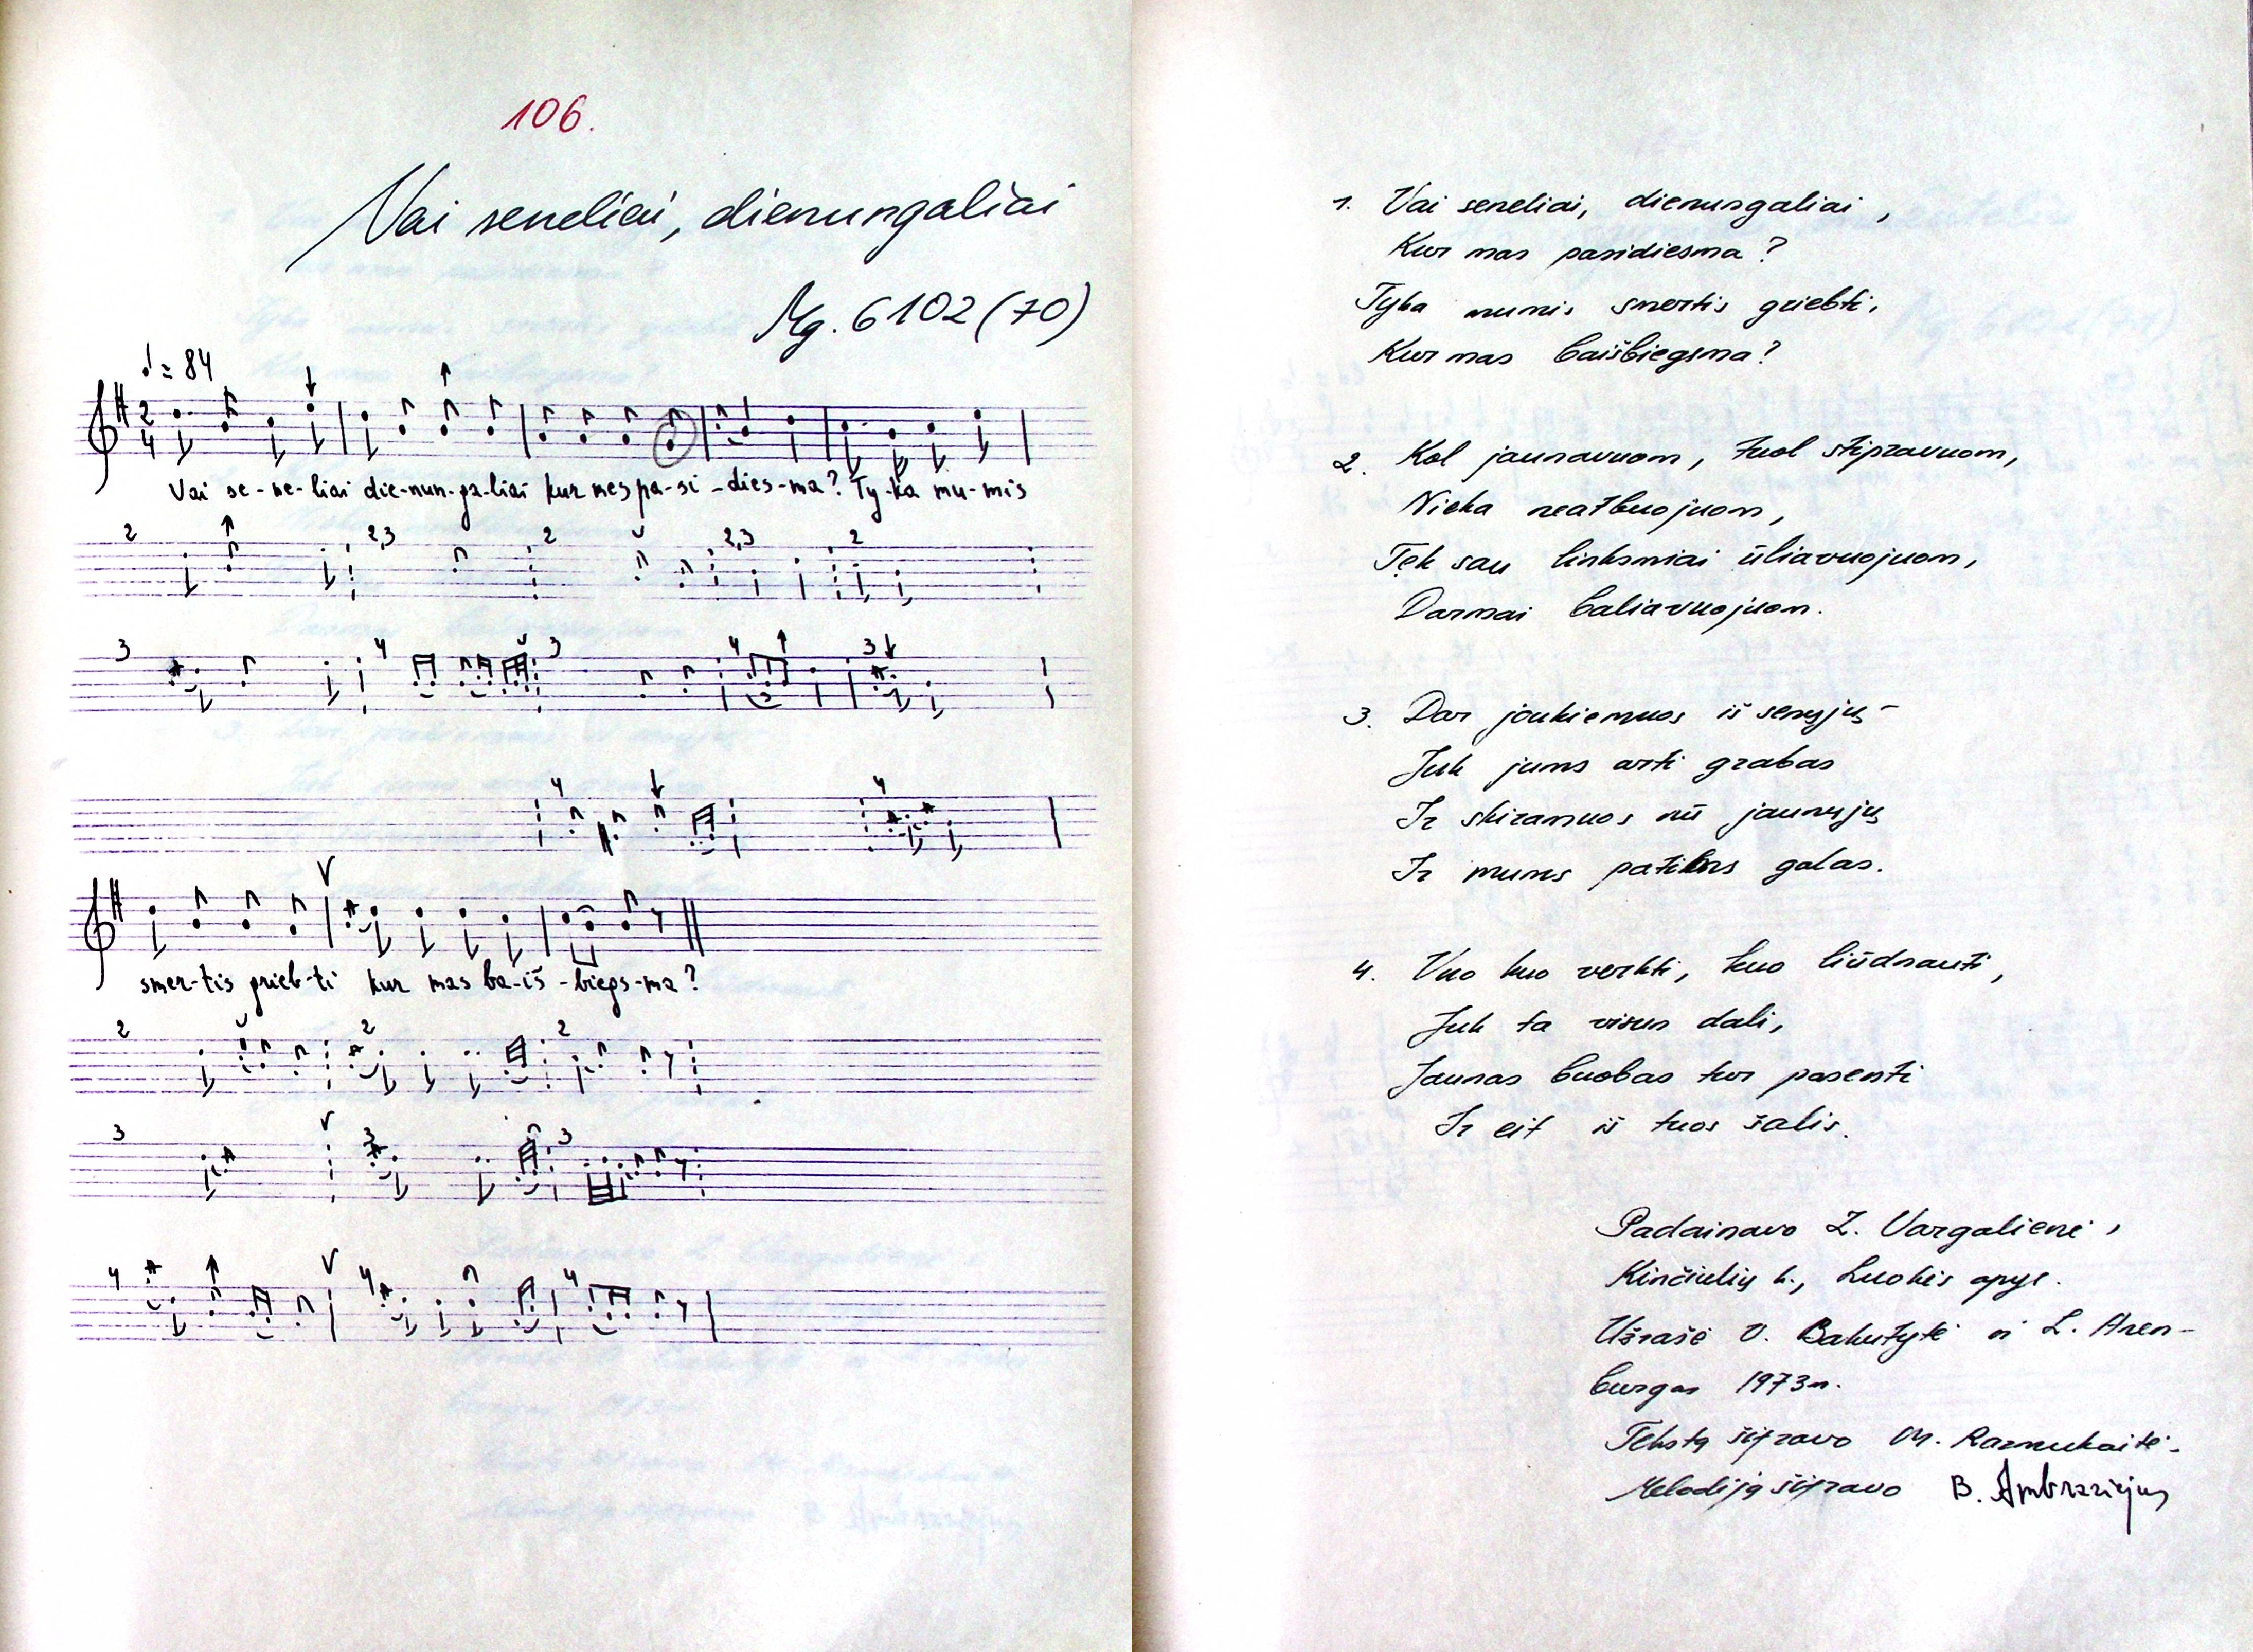 106.
Vai seneliai, dienungaliai
Mg. 6102 (70)
♩ = 84
2
4
Vai se-ne-liai die-nun-ga-liai kur mes pa-si-dies-ma? Ty-ka mu-mis
2 2,3 2 2,3 2
3 4 3 4 3
4 4
smer-tis grieb-ti kur mas ba-iš-biegs-ma?
2 2 2
3 3 3
4 4 4
1. Vai seneliai, dienungaliai,
Kur mas pasidiesma?
Tyka mumis smertis griebti,
Kur mas baišbiegsma?
2. Kol jaunavuom, tuol stipravuom,
Nieka neatbuojuom,
Tęk sau linksmiai ūliavuojuom,
Darmai baliavuojuom.
3. Dar joukiemuos iš senyjų –
Juk jums arti grabas
Ir skiramuos nū jaunyjų
Ir mums patiks galas.
4. Vuo kuo verkti, kuo liūdnauti,
Juk ta visun dali,
Jaunas buobas tur pasenti
Ir eit iš tuos šalis.
Padainavo Z. Vargalienė,
Kinčiulių k., Luokės apyl.
Užrašė V. Bakutytė ir L. Aren-
burgas 1973 m.
Tekstą šifravo M. Razmukaitė.
Melodiją šifravo B. Ambraziejus